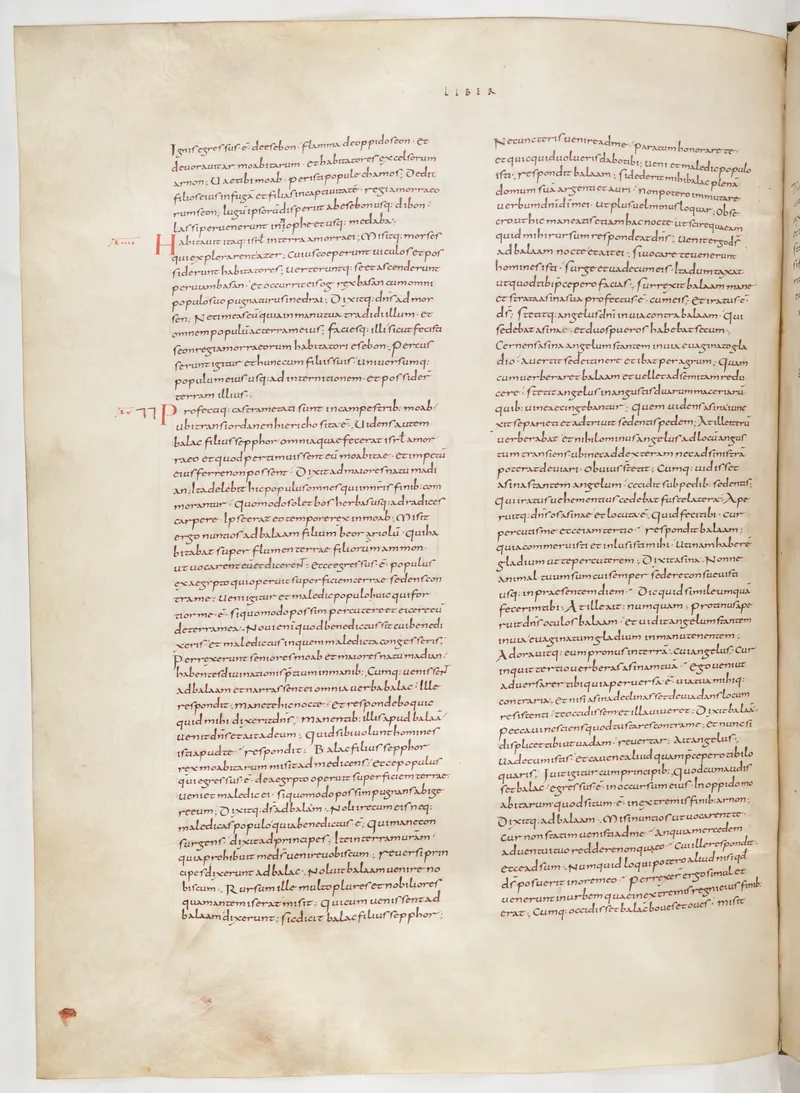 LIBER
Ignis egressus ẽ de esebon · flamma de oppido seon · et
devoravit ar moabitarum · et habitatores excelsorum
arnon; Vae tibi moab · peristi popule chamos; Dedit
filios eius in fugã · et filias in captivitatẽ · regi amorraeo
rum seon; Iugũ ipsorũ disperiit ab esebon usq: dibon ·
Lassi pervenerunt in nophe et usq: medaba;
Habitavit itaq: isrl in terra amorraei; Misitq: moyses
qui explorarent azer; Cuius coeperunt viculos et pos
siderunt habitatores; Verteruntq: se et ascenderunt
per viam basan · et occurrit eis og rex basan cum omni
populo suo pugnaturus in edrai; Dixitq: dns ad moy
sen; Ne timeas eũ quia in manu tua tradidi illum · et
omnem populũ ac terram eius; faciesq: illi sicut fecisti
seon regi amorraeorum habitatori esebon; Percus
serunt igitur et hunc cum filiis suis · universumq:
populum eius usq: ad internitionem · et possider
terram illius;
Profectiq: castrametati sunt in campestrib: moab ·
ubi trans iordanen hiericho sita ẽ; Videns autem
balac filius sepphor omnia quae fecerat isrl amor
raeo et quod pertimuissent eũ moabitae · et impetũ
eius ferre non possent · Dixit ad maiores natu madi
an; Ita delebit hic populus omnes qui in nris finib: com
morantur · quomodo solet bos herbas usq: ad radices
carpere · Ipse erat eo tempore rex in moab; Misit
ergo nuntios ad balaam filium beor ariolũ · qui ha
bitabat super flumen terrae filiorum ammon ·
ut vocarent eũ et dicerent; Ecce egressus ẽ · populus
ex aegypto qui operuit superficiem terrae · sedens con
tra me; Veni igitur et maledic populo huic qui for
tior me ẽ · si quo modo possim percutere et eicere eũ
de terra mea; Novi enĩ quod benedictus sit cui benedi
xeris · et maledictus in quem maledicta congesseris;
Perrexerunt seniores moab et maiores natu madian ·
habentes divinationis p̃tium in manib; Cumq: venissent
ad balaam et narrassent ei omnia verba balac · Ille
respondit; manete hic nocte · et respondebo quic
quid mihi dixerit dns; manentib: illis apud balaã
venit dns et ait ad eum; quid sibi volunt homines
isti apud te · respondit; Balac filius sepphor
rex moabitarum misit ad me dicens · ecce populus
qui egressus ẽ · de aegypto operuit superficiem terrae ·
veni et maledic ei · si quo modo possim pugnans abige
re eum; Dixitq: ds ad balaam; Noli ire cum eis neq:
maledicas populo quia benedictus ẽ; Qui mane con
surgens dixit ad principes; Ite in terram vrãm
quia prohibuit me dns venire vobiscum; reversi prin
cipes dixerunt ad balac; Noluit balaam venire no
biscum; Rursum ille multo plures et nobiliores
quam ante miserat misit; Qui cum venissent ad
balaam dixerunt; sic dicit balac filius sepphor;
Ne cuncteris venire ad me · paratum honorare te ·
et quicquid volueris dabo tibi; veni et maledic populo
isti; respondit balaam; si dederit mihi balac plenã
domum suã argenti et auri · non potero immutare
verbum dni di mei · ut plus vel minus loquar; obse
cro ut hic maneatis etiam hac nocte · ut scire queam
quid mihi rursum respondeat dns; Venit ergo ds
ad balaam nocte et ait ei; si vocare te venerunt
homines isti · surge et vade cum eis · Ita dumtaxat
ut quod tibi p̃cepero facias; surrexit balaam mane ·
et strata asina sua profectus ẽ · cum eis; et iratus ẽ ·
ds; stetitq: angelus dni in via contra balaam · qui
sedebat asinae · et duos pueros habebat secum;
Cernens asina angelum stantem in via evaginato gla
dio · avertit se de itinere et ibat per agrum; Quam
cum verberaret balaam et vellet ad semitam redu
cere · stetit angelus in angustiis duarum maceriarũ ·
quib: vineae cingebantur; Quem videns asina iunc
xit se parieti et adtrivit sedentis pedem; At ille iterũ
verberabat · et nihilominus angelus ad locũ angus
tum transiens ubi nec ad dexteram nec ad sinistrã
poterat deviari · obvius stetit; Cumq: vidisset
asina stantem angelum concidit sub pedib: sedentis;
Qui iratus vehementius cedebat fuste latera; Ape
ruitq: dns os asinae · et locuta ẽ; Quid feci tibi · cur
percutis me ecce iam tertio · respondit balaam;
quia commeruisti et inlusisti mihi · Utinam haberẽ
gladium ut te percuterem; Dixit asina; Nonne
animal tuum sum cui semper sedere consuesti
usq: in praesentem diem · Dic quid simile umquã
fecerim tibi; At ille ait: numquam; protinus ape
ruit dns oculos balaam · et vidit angelum stantem
in via evaginatum gladium in manu tenentem;
Adoravitq: eum pronus in terrã; cui angelus; Cur
inquit tertio verberas asinam tuã · Ego veni ut
adversarer tibi quia perversa ẽ · via tua mihiq:
contraria; et nisi asina declinasset de via dans locum
resistenti · te occidissem et illa viveret; Dixit balaã;
peccavi nesciens quod tu stares contra me; et nunc si
displicet tibi ut vadam · revertar; Ait angelus;
Vade cum istis · et cave ne aliud quam p̃cepero tibi lo
quaris; Ivit igitur cum principib; Quod cum audis
set balac · egressus ẽ · in occursum eius in oppido mo
abitarum quod situm ẽ · in extremis finib: arnon;
Dixitq: ad balaam; Misi nuntios ut vocarent te ·
Cur non statim venisti ad me · An quia mercedem
adventui tuo reddere nonqueo · Cui ille respondit;
Ecce adsum; Numquid loqui potero aliud nisi qđ
ds posuerit in ore meo · Perrexer ergo simul et
venerunt in urbem quae in extremis regni eius finib:
erat; Cumq: occidisset balac boves et oves · misit